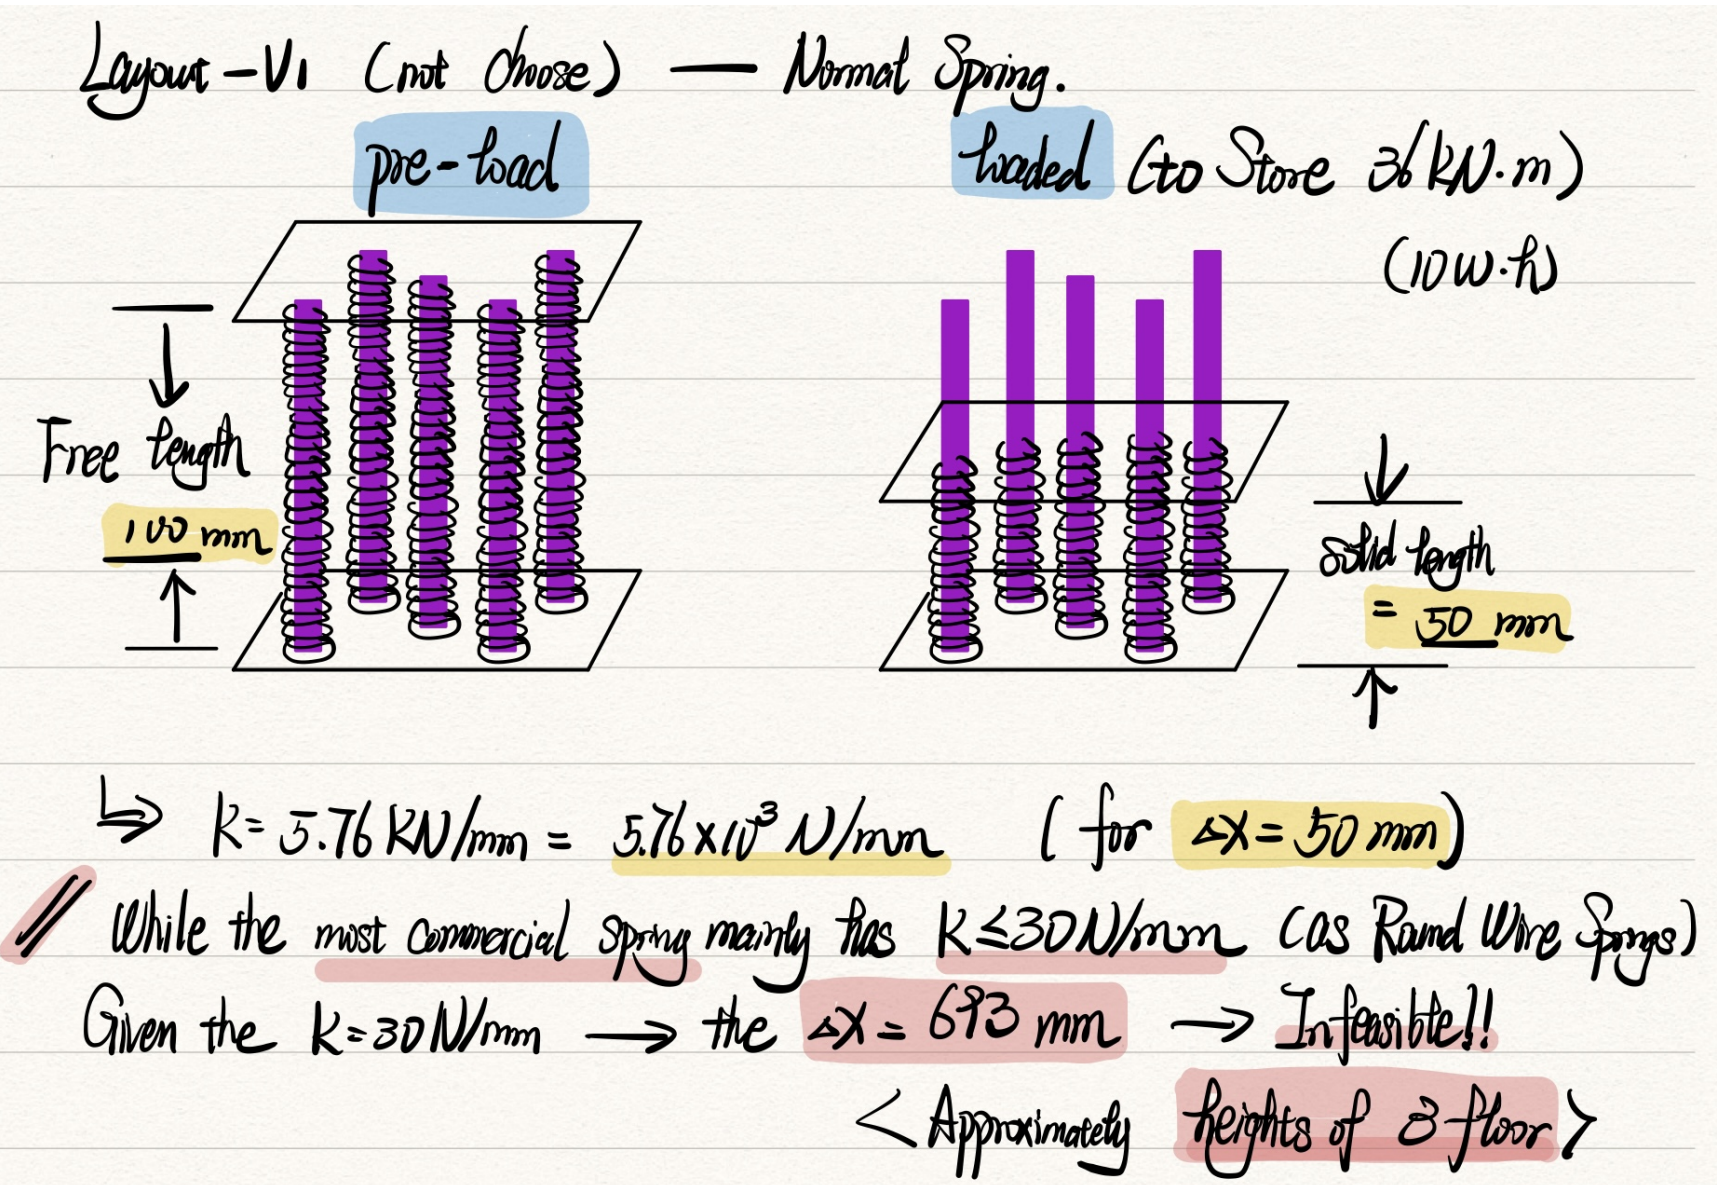 Layout-V1 (not choose) — Normal Spring.
pre-load
loaded (to Store 36 kN·m)
(10W·h)
Free length
100 mm
solid length
= 50 mm
↳ K = 5.76 KN/mm = 5.76×10³ N/mm (for ΔX = 50 mm)
// While the most commercial spring mainly has K≤30N/mm (as Round Wire Springs)
Given the K=30N/mm → the ΔX = 693 mm → Infeasible!!
< Approximately heights of 3 floor >